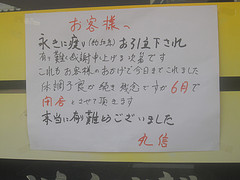 お客様へ
永きに渡り お引立下され
有難く感謝申し上げる次第です
これもお客様のおかげと今日までこれました
体調不良が続き残念ですが6月で
閉店とさせて頂きます
本当に有り難うございました
丸信